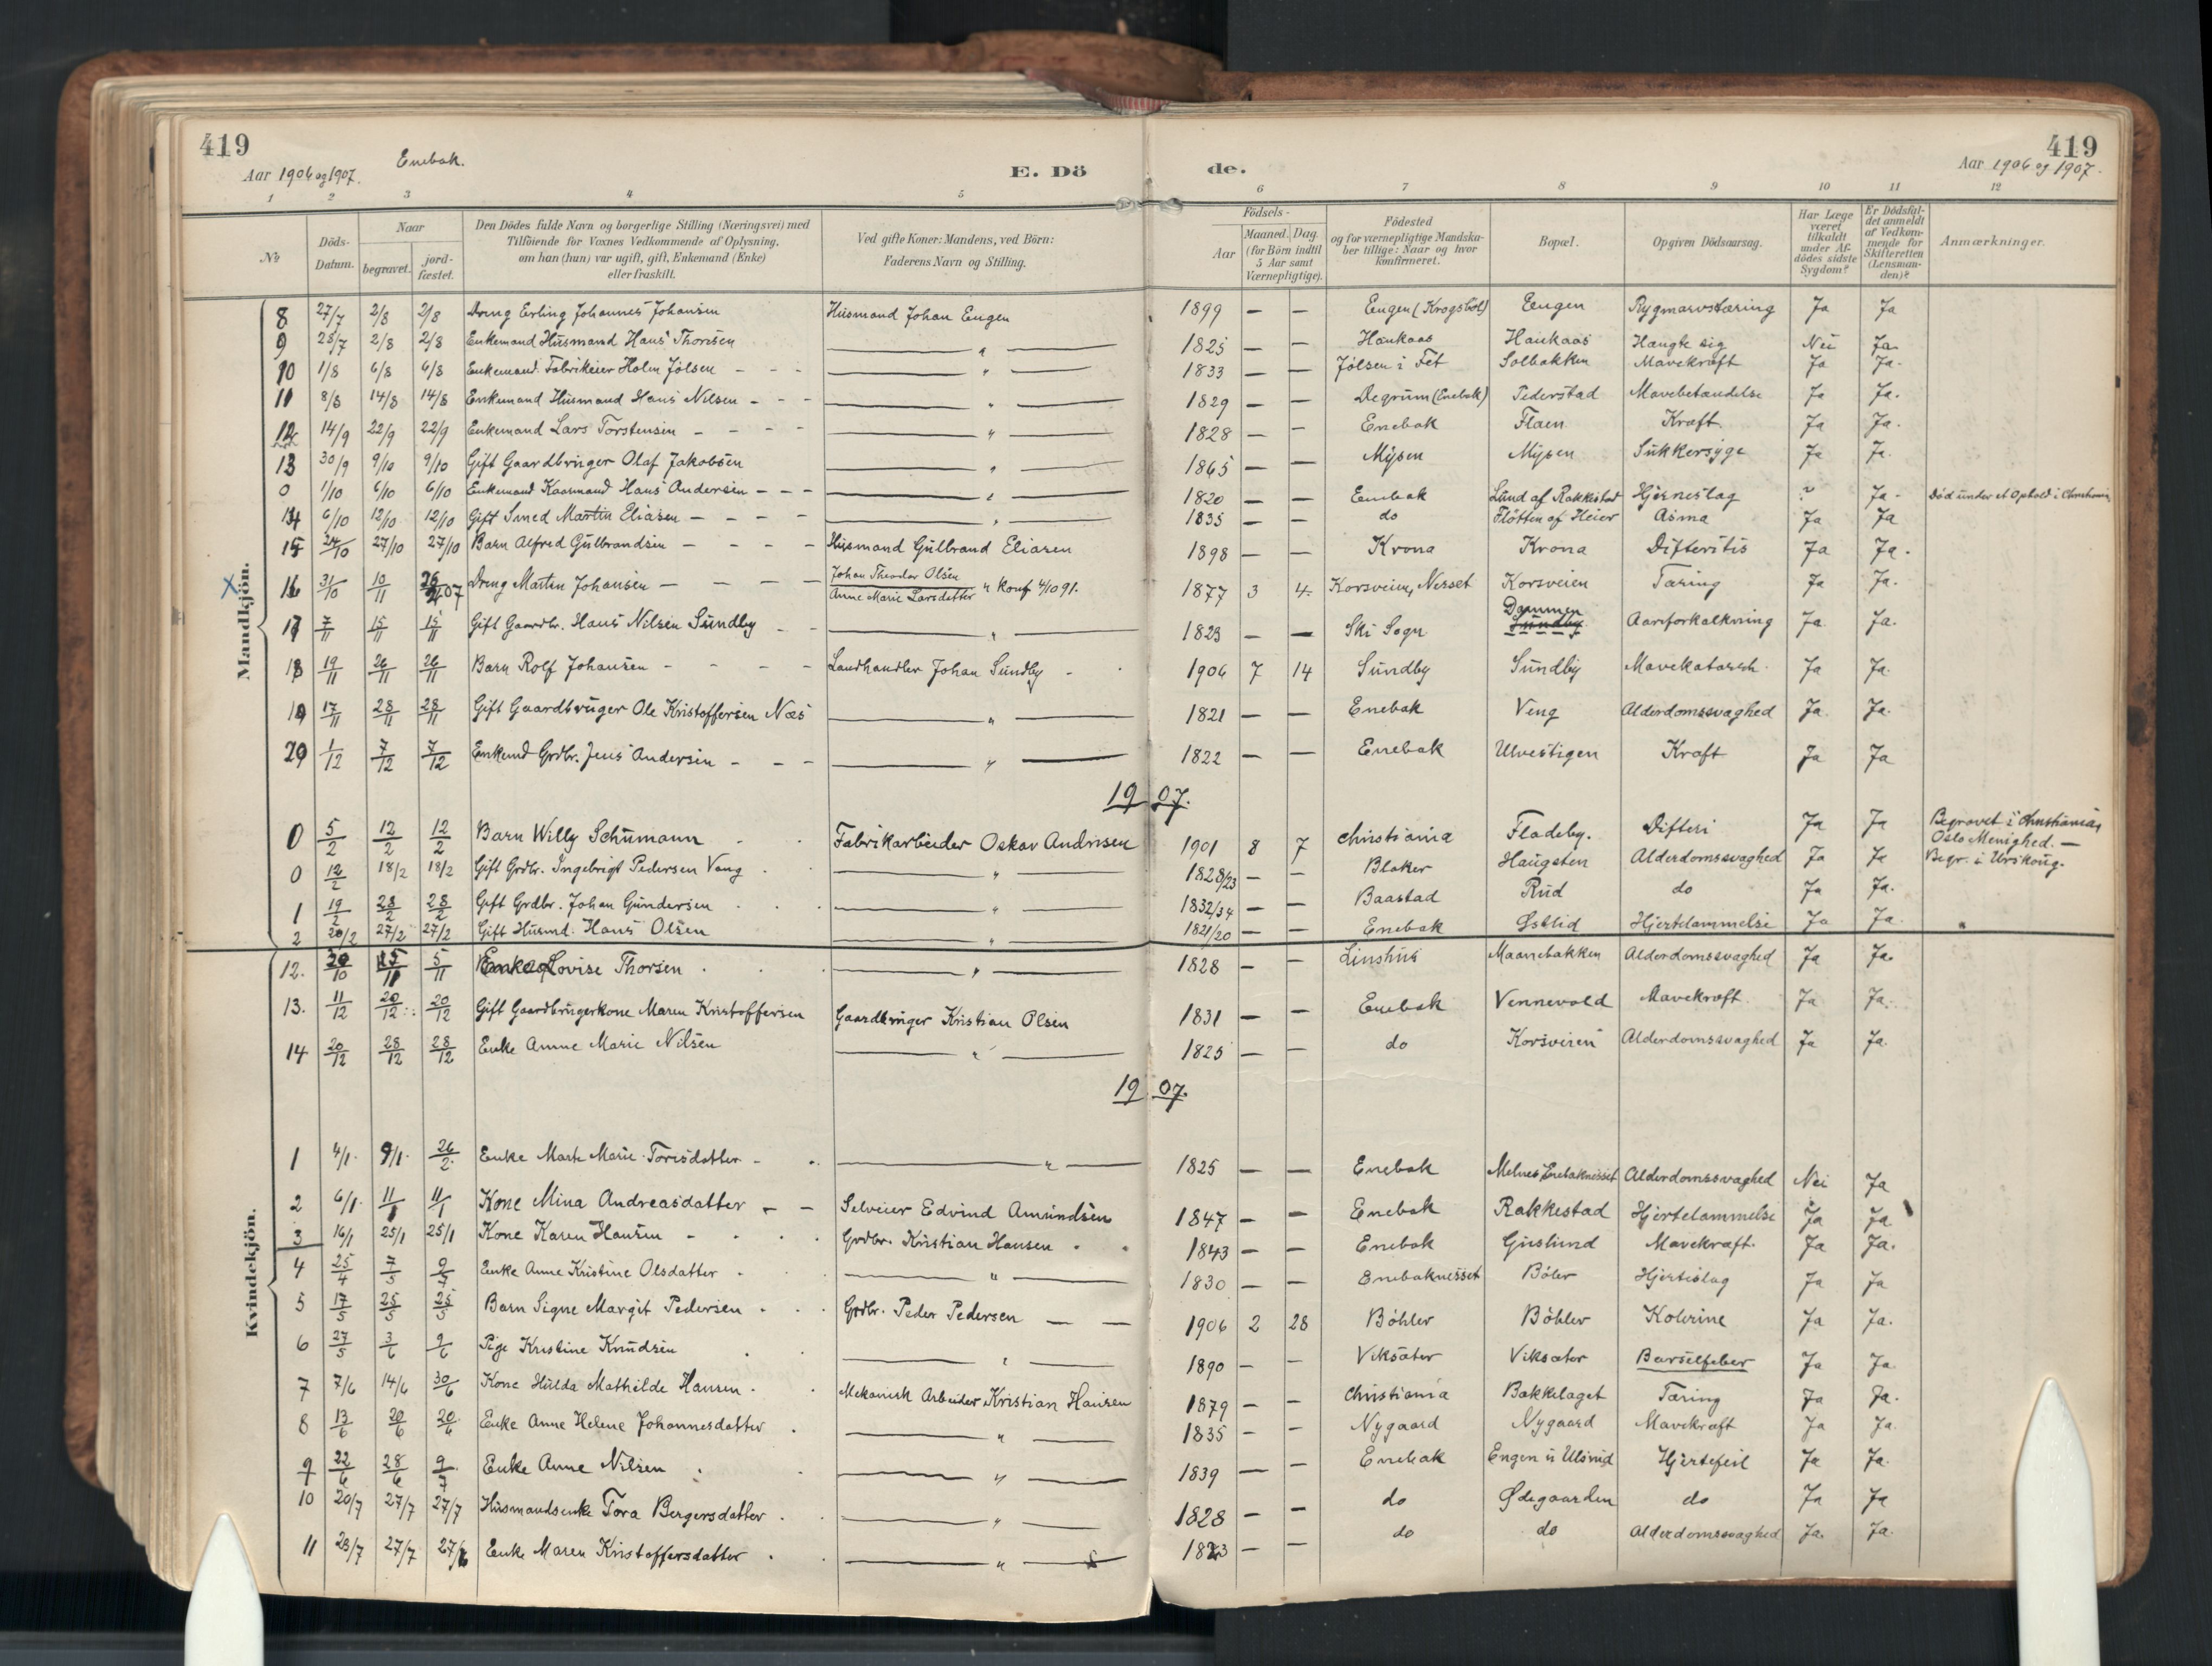 419
Enebak.
419
Aar 1906 og 1907.
E. Dö
de.
Aar 1906 og 1907.
1 2 3 4 5 6 7 8 9 10 11 12
No
Döds-Datum.
Naar
begravet.
jord-fæstet.
Den Dödes fulde Navn og borgerlige Stilling (Næringsvei) med
Tilföiende for Voxnes Vedkommende af Oplysning,
om han (hun) var ugift, gift, Enkemand (Enke)
eller fraskilt.
Ved gifte Koner: Mandens, ved Börn:
Faderens Navn og Stilling.
Födsels-
Aar
Maaned. Dag.
(for Börn indtil
5 Aar samt
Værnepligtige).
Födested
og for værnepligtige Mandska-
ber tillige: Naar og hvor
konfirmeret.
Bopæl.
Opgiven Dödsaarsag.
Har Læge
været
tilkaldt
under Af-
dödes sidste
Sygdom?
Er Dödsfal-
det anmeldt
af Vedkom-
mende for
Skifteretten
(Lensman-
den)?
Anmærkninger.
Mandkjön.
8 27/7 2/8 2/8 Dreng Erling Johannes Johansen Husmand Johan Engen 1899 — — Engen (Krogsböl) Engen Rygmarvstæring Ja Ja
9 28/7 2/8 2/8 Enkemand Husmand Hans Thoresen — " — 1825 — — Haukaas Haukaas Hængte sig Nei Ja.
10 1/8 6/8 6/8 Enkemand Fabrikeier Holm Jölsen — " — 1833 — — Jölsen i Fet Solbakken Mavekræft Ja Ja.
11 8/8 14/8 14/8 Enkemand Husmand Hans Nilsen — " — 1829 — — Degrum (Enebak) Pederstad Mavebetændelse Ja Ja.
12 14/9 22/9 22/9 Enkemand Lars Torstensen — " — 1828 — — Enebak Flaen Kræft. Ja Ja.
13 30/9 9/10 9/10 Gift Gaardbruger Olaf Jakobsen — " — 1865 — — Mysen Mysen Sukkersyge Ja Ja.
0 1/10 6/10 6/10 Enkemand Kaarmand Hans Andersen — " — 1820 — — Enebak Lund af Rakkestad Hjerneslag ? Ja - Död under et Ophold i Christiania
14 6/10 12/10 12/10 Gift Smed Martin Eliasen — " — 1835 — — do Flötten af Heier Asma Ja Ja
15 24/10 27/10 27/10 Barn Alfred Gulbrandsen Husmand Gulbrand Eliasen 1898 — — Krona Krona Difteritis Ja Ja.
x 16 31/10 10/11 26/4 07 Dreng Martin Johansen Johan Theodor Olsen Anne Marie Larsdatter " konf 4/10 91. 1877 3 4. Korsveien, Nesset Korsveien Tæring Ja Ja.
17 7/11 15/11 15/11 Gift Gaardbr. Hans Nilsen Sundby — " — 1823 — — Ski Sogn Sundby Dammen Aareforkalkning Ja Ja.
18 19/11 26/11 26/11 Barn Rolf Johansen Landhandler Johan Sundby 1906 7 14 Sundby Sundby Mavekatarrh. Ja Ja.
19 17/11 28/11 28/11 Gift Gaardbruger Ole Kristoffersen Næs — " — 1821 — — Enebak Veng Alderdomssvaghed Ja. Ja.
20 1/12 7/12 7/12 Enkemd Grdbr. Jens Andersen — " — 1822 — — Enebak Ulvestigen Kræft Ja Ja
1907.
0 5/2 12/2 12/2 Barn Willy Schumann Fabrikarbeider Oskar Andresen 1901 8 7 Christiania Fladeby. Difteri Ja Ja Begravet i Christiania, Oslo Menighed. —
0 12/2 18/2 18/2 Gift Grdbr. Ingebrigt Pedersen Vang — " — 1828/23 — — Blaker Haugsten Alderdomssvaghed Ja Ja Begr. i Urskoug.
1 19/2 28/2 28/2 Gift Grdbr. Johan Gundersen — " — 1832/34 — — Baastad Rud do Ja Ja.
2 20/2 27/2 27/2 Gift Husmd. Hans Olsen — " — 1821/20 — — Enebak Östlid Hjertelammelse Ja Ja
Kvindekjön.
12. /10 /11 5/11 Enke Lovise Thorsen — " — 1828 — — Linshus Maanebakken Alderdomssvaghed Ja Ja.
13. 11/12 20/12 20/12 Gift Gaardbrugerkone Maren Kristoffersen Gaardbruger Kristian Olsen 1831 — — Enebak Vennevold Mavekræft Ja Ja.
14 20/12 28/12 28/12 Enke Anne Marie Nilsen — " — 1825 — — do Korsveien Alderdomssvaghed Ja Ja.
1907.
1 4/1. 9/1. 26/2. Enke Marte Marie Toresdatter — " — 1825 — — Enebak Melnes Enebaknesset Alderdomssvaghed Nei Ja
2 6/1. 11/1 11/1 Kone Mina Andreasdatter Selveier Edvind Amundsen 1847 — — Enebak Rakkestad Hjertelammelse Ja Ja
3 16/1 25/1 25/1 Kone Karen Hansen Grdbr. Kristian Hansen 1843 — — Enebak Gjislund Mavekræft. Ja Ja.
4 25/4 7/5 9/7 Enke Anne Kristine Olsdatter — " — 1830 — — Enebaknesset Böler Hjerteslag Ja Ja
5 17/5 25/5 25/5 Barn Signe Margit Pedersen Grdbr. Peder Pedersen — — 1906 2 28 Böhler Böhler Kolerine Ja Ja.
6 27/5 3/6 9/6 Pige Kristine Knudsen — " — 1890 — — Viksæter Viksæter Barselfeber Ja Ja
7 7/6 14/6 30/6 Kone Hulda Mathilde Hansen Mekanisk Arbeider Kristian Hansen 1879 — — Christiania Bakkelaget Tæring Ja Ja.
8 13/6 20/6 20/6 Enke Anne Helene Johannesdatter — " — 1835 — — Nygaard Nygaard Mavekræft Ja Ja
9 22/6 28/6 9/7 Enke Anne Nilsen — " — 1839 — — Enebak Engen u Ulsrud Hjertefeil Ja Ja.
10 20/7 27/7 27/7 Husmandsenke Tora Bergersdatter — " — 1828 — — do Ödegaarden do Ja Ja
11 23/7 27/7 27/7 Enke Maren Kristoffersdatter — " — 1823 — — do do Alderdomssvaghed Ja. Ja.